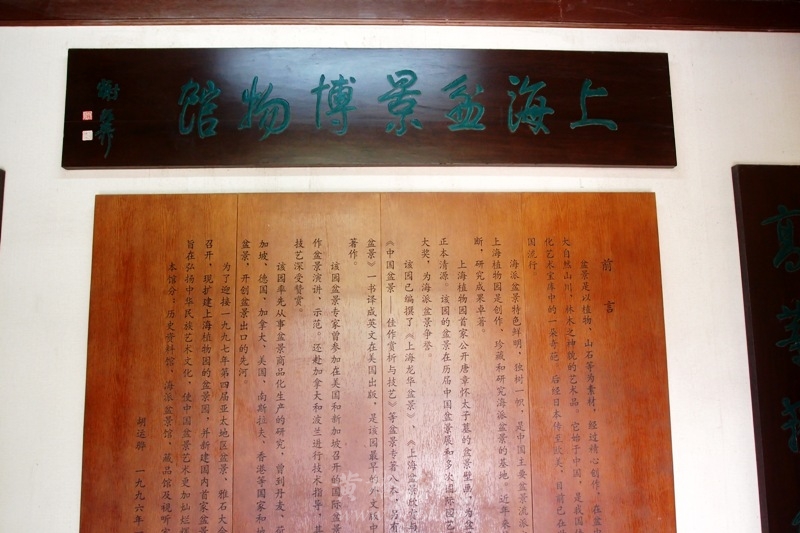 上海盆景博物馆
前言
盆景是以植物、山石等为素材，经过精心创作，在盆
大自然山川、林木之神貌的艺术品。它始于中国，是我国
化艺术宝库中的一朵奇葩。后经日本传至欧美，目前已在
国流行
海派盆景特色鲜明，独树一帜，是中国主要盆景流派
上海植物园是创作、珍藏和研究海派盆景的基地。近年来
断，研究成果卓著。
上海植物园首家公开唐章怀太子墓的盆景壁画，为盆
正本清源。该园的盆景在历届中国盆景展和多次国际园艺
大奖，为海派盆景争誉。
该园已编撰了《上海龙华盆景》、《上海盆景欣赏与
《中国盆景——佳作赏析与技艺》等盆景专著八本，另有
盆景》一书译成英文在美国出版，是该园最早的外文版中
著作。
该园盆景专家曾参加在美国和新加坡召开的国际盆景
作盆景演讲、示范。还赴加拿大和波兰进行技术指导，其
技艺深受赞赏。
该园率先从事盆景商品化生产的研究，曾到丹麦、荷
加坡、德国、加拿大、美国、南斯拉夫、香港等国家和地
盆景，开创盆景出口的先河
为了迎接一九九七年第四届亚太地区盆景、雅石大会
召开，现扩建上海植物园的盆景园，并新建国内首家盆景
旨在弘扬中华民族艺术文化，使中国盆景艺术更加灿烂辉
本馆分：历史资料馆，海派盆景馆，藏品馆及视听室
胡运骅 一九九六年